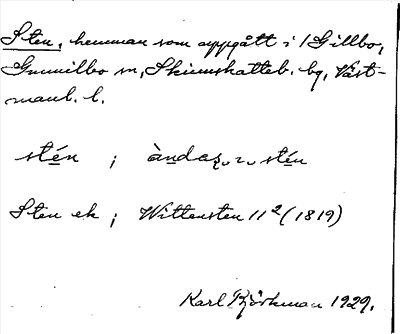 Sten, hemman som uppgått i 1 Gillbo,
Gunnilbo sn, Skinnskatteb. bg, Väst-
manl. l.
stén ; àndaʂ. 2. stén
Sten ek ; Wittensten 11² (1819)
Karl Björkman 1929.